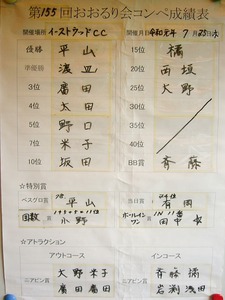 第155回おおるり会コンペ成績表
開催場所 イーストウッドCC 開催月日 令和元年 7月25日
優勝 平山 15位 橘
準優勝 渡皿 20位 西垣
3位 廣田 25位 大野
4位 太田 30位
5位 野口 35位
7位 米子 40位
10位 坂田 BB賞 斉藤
☆特別賞
ベスグロ賞 平山 当日賞 有岡
回数賞 小野 ホールインワン 田中
☆アトラクション
アウトコース インコース
ニアピン賞 大野 米子 斉藤 橘
廣田 廣田 岩渕 浅田